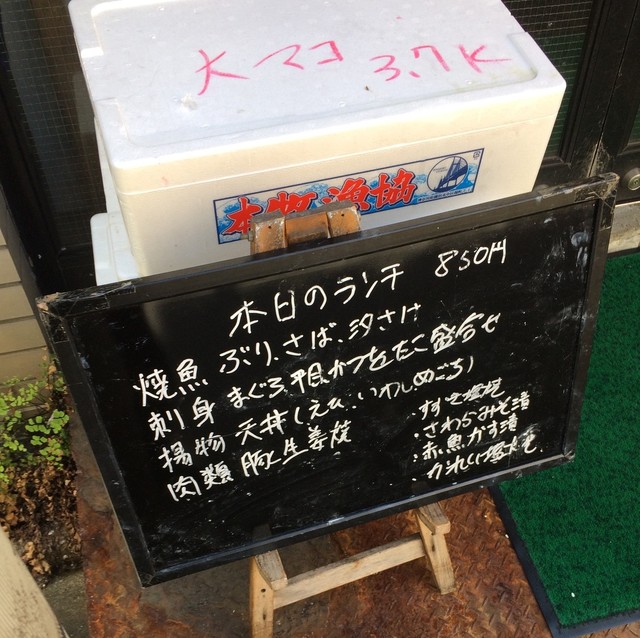 大マコ 3.7K
漁協
本日のランチ 850円
焼魚 ぶり、さば、汐さけ
刺身 まぐろ かつを たこ 盛合せ
揚物 天丼(えび、いわし、めごち)
肉類 豚生姜焼
・すずき塩焼
・さわらみそ漬
・赤魚かす漬
・かれい